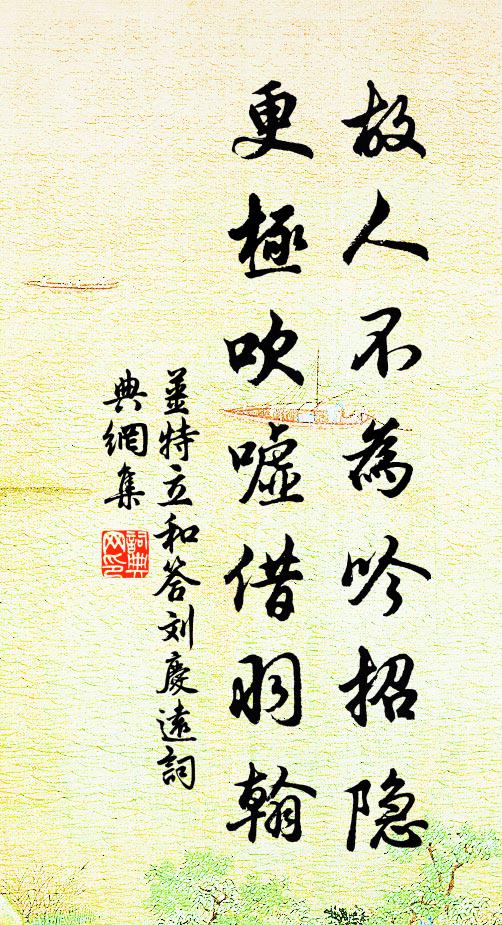 故人不為吟招隐
更極吹嘘借羽翰
姜特立和答刘慶遠詞
典網集
詞典
网印